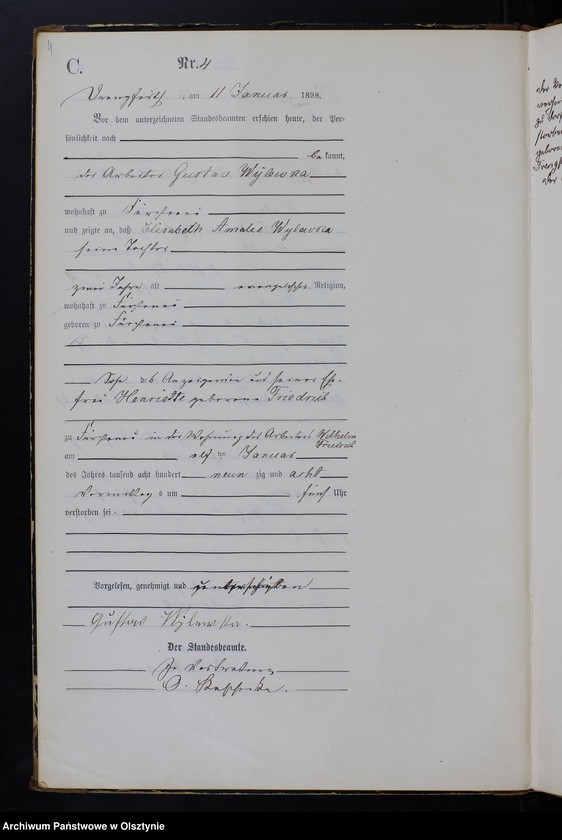 4
C.
Nr. 4
Drengfurth, am 11 Januar 1898.
Vor dem unterzeichneten Standesbeamten erschien heute, der Per-
sönlichkeit nach
bekannt,
der Arbeiter Gustav Wylewna
wohnhaft zu Fürstenau
und zeigte an, daß Elisabeth Amalie Wylewska
seine Tochter
zwei Jahre alt evangelischer Religion,
wohnhaft zu Fürstenau
geboren zu Fürstenau
des Anzeigenden und seiner Ehe-
frau Henriette geborene Friedrich
zu Fürstenau in der Wohnung des Arbeiters Wilhelm
Friedrich
am elf ten Januar
des Jahres tausend acht hundert neun zig und acht
Vormittags um fünf Uhr
verstorben sei.
Vorgelesen, genehmigt und unterschrieben
Gustav Wylewska.
Der Standesbeamte.
In Vertretung
der
Archiwum Państwowe w Olsztynie